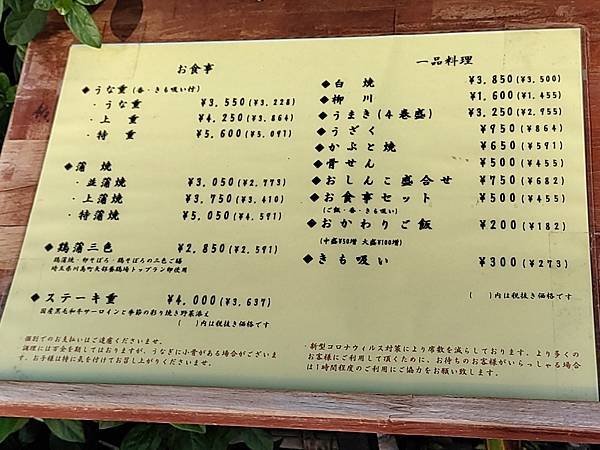 お食事
◆うな重(香・きも吸い付)
・うな重 ¥3,550(¥3,228)
・上重 ¥4,250(¥3,864)
・特重 ¥5,600(¥5,091)
◆蒲焼
・並蒲焼 ¥3,050(¥2,773)
・上蒲焼 ¥3,750(¥3,410)
・特蒲焼 ¥5,050(¥4,591)
◆鶏蒲三色 ¥2,850(¥2,591)
鶏蒲焼・卵そぼろ・鶏そぼろの三色ご膳
埼玉県川島町矢部養鶏場トップラン卵使用
◆ステーキ重 ¥4,000(¥3,637)
国産黒毛和牛サーロインと季節の彩り焼き野菜添え
( )内は税抜き価格です
個別でのお支払いはご遠慮くださいませ。
調理には万全を期しておりますが、うなぎに小骨がある場合がございま
す。お子様は特に気を付けてお召し上がりくださいませ。
一品料理
◆白焼 ¥3,850(¥3,500)
◆柳川 ¥1,600(¥1,455)
◆うまき(4巻盛) ¥3,250(¥2,955)
◆うざく ¥950(¥864)
◆かぶと焼 ¥650(¥591)
◆骨せん ¥500(¥455)
◆おしんこ盛合せ ¥750(¥682)
◆お食事セット ¥500(¥455)
(ご飯・香・きも吸い)
◆おかわりご飯 ¥200(¥182)
(中盛¥50増 大盛¥100増)
◆きも吸い ¥300(¥273)
( )内は税抜き価格です
・新型コロナウィルス対策により席数を減らしております。より多くの
お客様にご利用して頂くために、お待ちのお客様がいらっしゃる場合
は1時間程度のご利用にご協力をお願い致します。